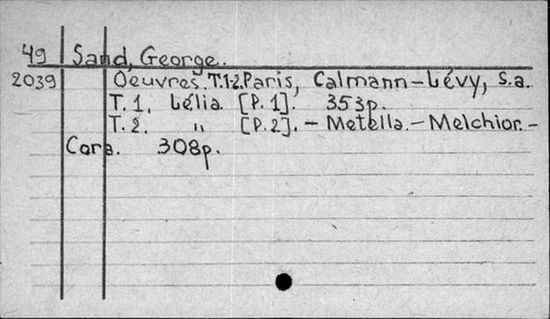 49 Sand, George.
2039 Oeuvres. T.1-2. Paris, Calmann-Lévy, s.a.
T. 1. Lélia [P. 1]. 353p.
T. 2. " [P. 2]. - Metella. - Melchior. -
Cora. 308p.